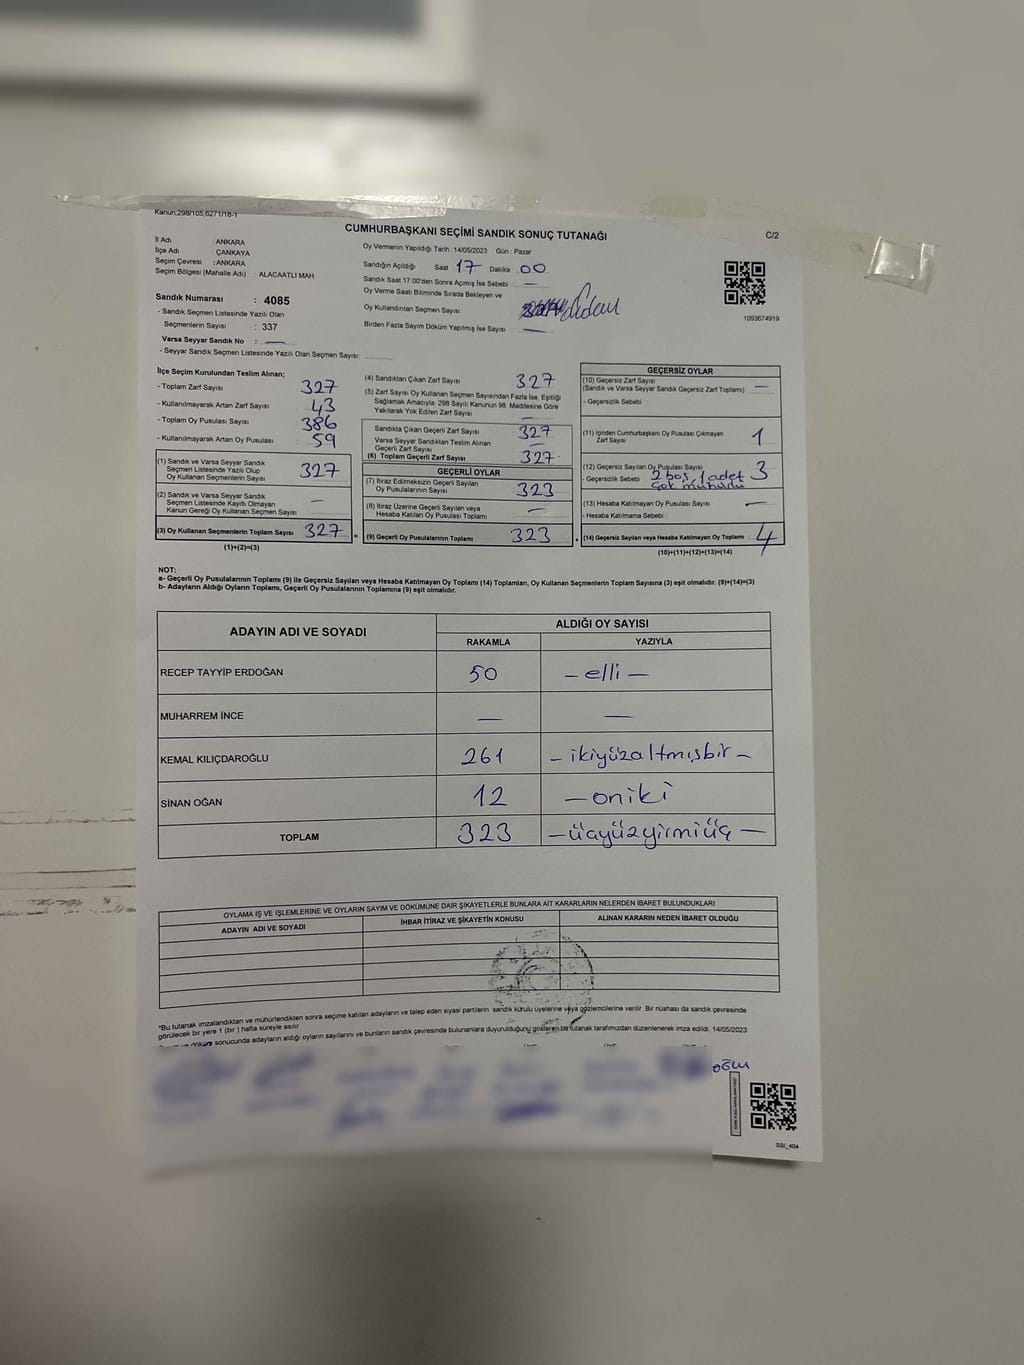 Kanun:298/105,6271/18-1
CUMHURBAŞKANI SEÇİMİ SANDIK SONUÇ TUTANAĞI
C/2
İl Adı : ANKARA
İlçe Adı : ÇANKAYA
Seçim Çevresi : ANKARA
Seçim Bölgesi (Mahalle Adı) : ALACAATLI MAH.
Oy Vermenin Yapıldığı Tarih : 14/05/2023 Gün : Pazar
Sandığın Açıldığı Saat 17 Dakika 00
Sandık Saat 17:00'den Sonra Açımış İse Sebebi —
Oy Verme Saati Bitiminde Sırada Bekleyen ve
Oy Kullandırılan Seçmen Sayısı
Birden Fazla Sayım Döküm Yapılmış İse Sayısı —
1093674919
Sandık Numarası : 4085
- Sandık Seçmen Listesinde Yazılı Olan
Seçmenlerin Sayısı : 337
Varsa Seyyar Sandık No : —
- Seyyar Sandık Seçmen Listesinde Yazılı Olan Seçmen Sayısı:
İlçe Seçim Kurulundan Teslim Alınan;
- Toplam Zarf Sayısı 327
- Kullanılmayarak Artan Zarf Sayısı 43
- Toplam Oy Pusulası Sayısı 386
- Kullanılmayarak Artan Oy Pusulası 59
(1) Sandık ve Varsa Seyyar Sandık
Seçmen Listesinde Yazılı Olup
Oy Kullanan Seçmenlerin Sayısı 327
(2) Sandık ve Varsa Seyyar Sandık
Seçmen Listesinde Kayıtlı Olmayan
Kanun Gereği Oy Kullanan Seçmen Sayısı —
(3) Oy Kullanan Seçmenlerin Toplam Sayısı 327
(1)+(2)=(3)
(4) Sandıktan Çıkan Zarf Sayısı 327
(5) Zarf Sayısı Oy Kullanan Seçmen Sayısından Fazla İse, Eşitliği
Sağlamak Amacıyla, 298 Sayılı Kanunun 98. Maddesine Göre
Yakılarak Yok Edilen Zarf Sayısı —
Sandıkta Çıkan Geçerli Zarf Sayısı 327
Varsa Seyyar Sandıktan Teslim Alınan
Geçerli Zarf Sayısı —
(6) Toplam Geçerli Zarf Sayısı 327
GEÇERLİ OYLAR
(7) İtiraz Edilmeksizin Geçerli Sayılan
Oy Pusulalarının Sayısı 323
(8) İtiraz Üzerine Geçerli Sayılan veya
Hesaba Katılan Oy Pusulası Toplamı —
(9) Geçerli Oy Pusulalarının Toplamı 323
GEÇERSİZ OYLAR
(10) Geçersiz Zarf Sayısı
(Sandık ve Varsa Seyyar Sandık Geçersiz Zarf Toplamı) —
- Geçersizlik Sebebi :
(11) İçinden Cumhurbaşkanı Oy Pusulası Çıkmayan
Zarf Sayısı 1
(12) Geçersiz Sayılan Oy Pusulası Sayısı 3
- Geçersizlik Sebebi 2 boş, 1 adet
çok mühürlü
(13) Hesaba Katılmayan Oy Pusulası Sayısı —
- Hesaba Katılmama Sebebi :
(14) Geçersiz Sayılan veya Hesaba Katılmayan Oy Toplamı 4
(10)+(11)+(12)+(13)=(14)
NOT:
a- Geçerli Oy Pusulalarının Toplamı (9) ile Geçersiz Sayılan veya Hesaba Katılmayan Oy Toplamı (14) Toplamları, Oy Kullanan Seçmenlerin Toplam Sayısına (3) eşit olmalıdır. (9)+(14)=(3)
b- Adayların Aldığı Oyların Toplamı, Geçerli Oy Pusulalarının Toplamına (9) eşit olmalıdır.
ADAYIN ADI VE SOYADI
ALDIĞI OY SAYISI
RAKAMLA YAZIYLA
RECEP TAYYİP ERDOĞAN 50 — elli —
MUHARREM İNCE — —
KEMAL KILIÇDAROĞLU 261 — ikiyüzaltmışbir —
SİNAN OĞAN 12 — oniki
TOPLAM 323 — üçyüzyirmiüç —
OYLAMA İŞ VE İŞLEMLERİNE VE OYLARIN SAYIM VE DÖKÜMÜNE DAİR ŞİKAYETLERLE BUNLARA AİT KARARLARIN NELERDEN İBARET BULUNDUKLARI
ADAYIN ADI VE SOYADI İHBAR İTİRAZ VE ŞİKAYETİN KONUSU ALINAN KARARIN NEDEN İBARET OLDUĞU
*Bu tutanak imzalandıktan ve mühürlendikten sonra seçime katılan adayların ve talep eden siyasi partilerin sandık kurulu üyelerine veya gözlemcilerine verilir. Bir nüshası da sandık çevresinde
görülecek bir yere 1 (bir) hafta süreyle asılır.
döküm sonucunda adayların aldığı oyların sayılarını ve bunların sandık çevresinde bulunanlara duyurulduğunu gösteren bu tutanak tarafımızdan düzenlenerek imza edildi. 14/05/2023
OĞLU
SSİ_404